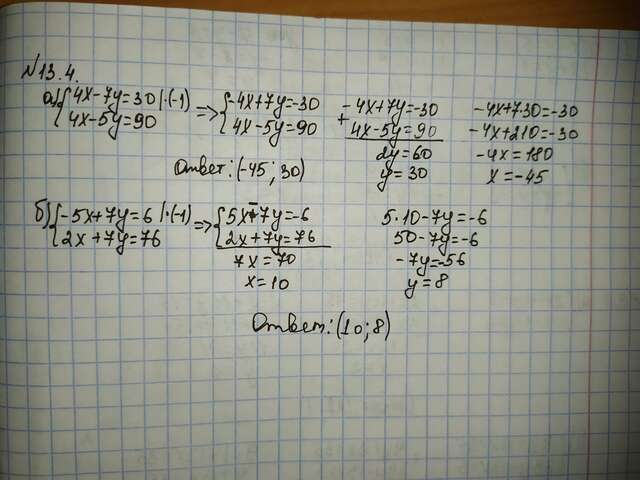 №13.4.
а) {4x-7y=30 |·(-1) => {-4x+7y=-30
{4x-5y=90 {4x-5y=90
-4x+7y=-30
+ 4x-5y=90
2y=60
y=30
-4x+7·30=-30
-4x+210=-30
-4x=180
x=-45
Ответ: (-45; 30)
б) {-5x+7y=6 |·(-1) => {5x-7y=-6
{2x+7y=76 {2x+7y=76
7x=70
x=10
5·10-7y=-6
50-7y=-6
-7y=-56
y=8
Ответ: (10; 8)